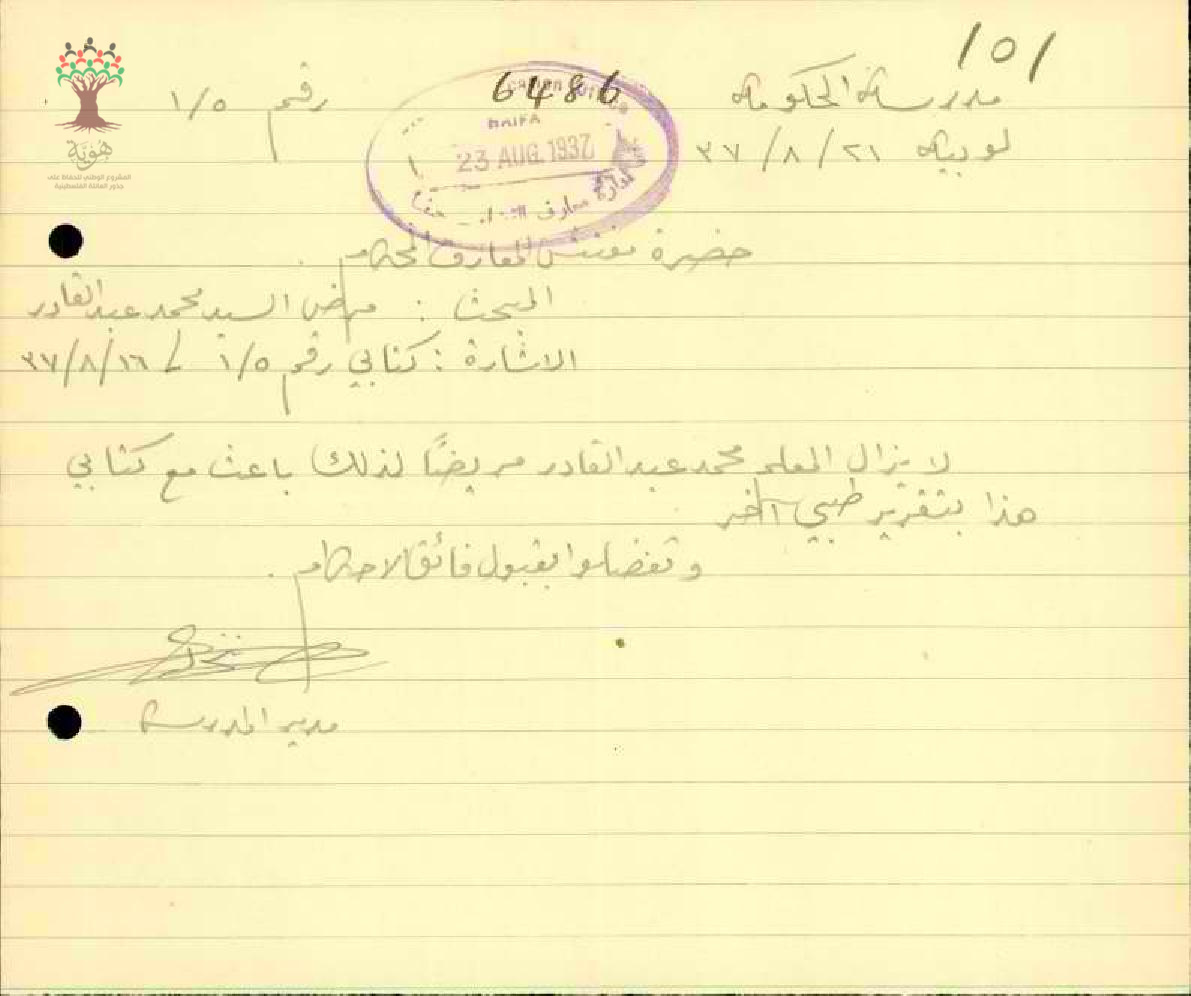 101
مدرسة الحكومة
لوبيه ٢١ / ٨ / ٣٧
رقم ١/٥
6486
HAIFA
23 AUG. 1937
ادارة معارف
هوية
المشروع الوطني للحفاظ على
جذور العائلة الفلسطينية
حضرة مفتش المعارف المحترم .
المبحث : مرض السيد محمد عبد القادر
الاشارة : كتابي رقم ١/٥ ٣٧/٨/١٦
لا يزال المعلم محمد عبد القادر مريضاً لذلك باعث مع كتابي
هذا بتقرير طبي آخر
وتفضلوا بقبول فائق الاحترام .
مدير المدرسة